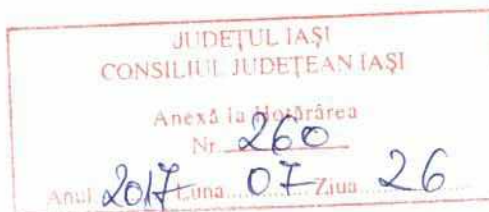 JUDEȚUL IAȘI
CONSILIUL JUDEȚEAN IAȘI
Anexă la Hotărârea
Nr. 260
Anul 2017 Luna 07 Ziua 26